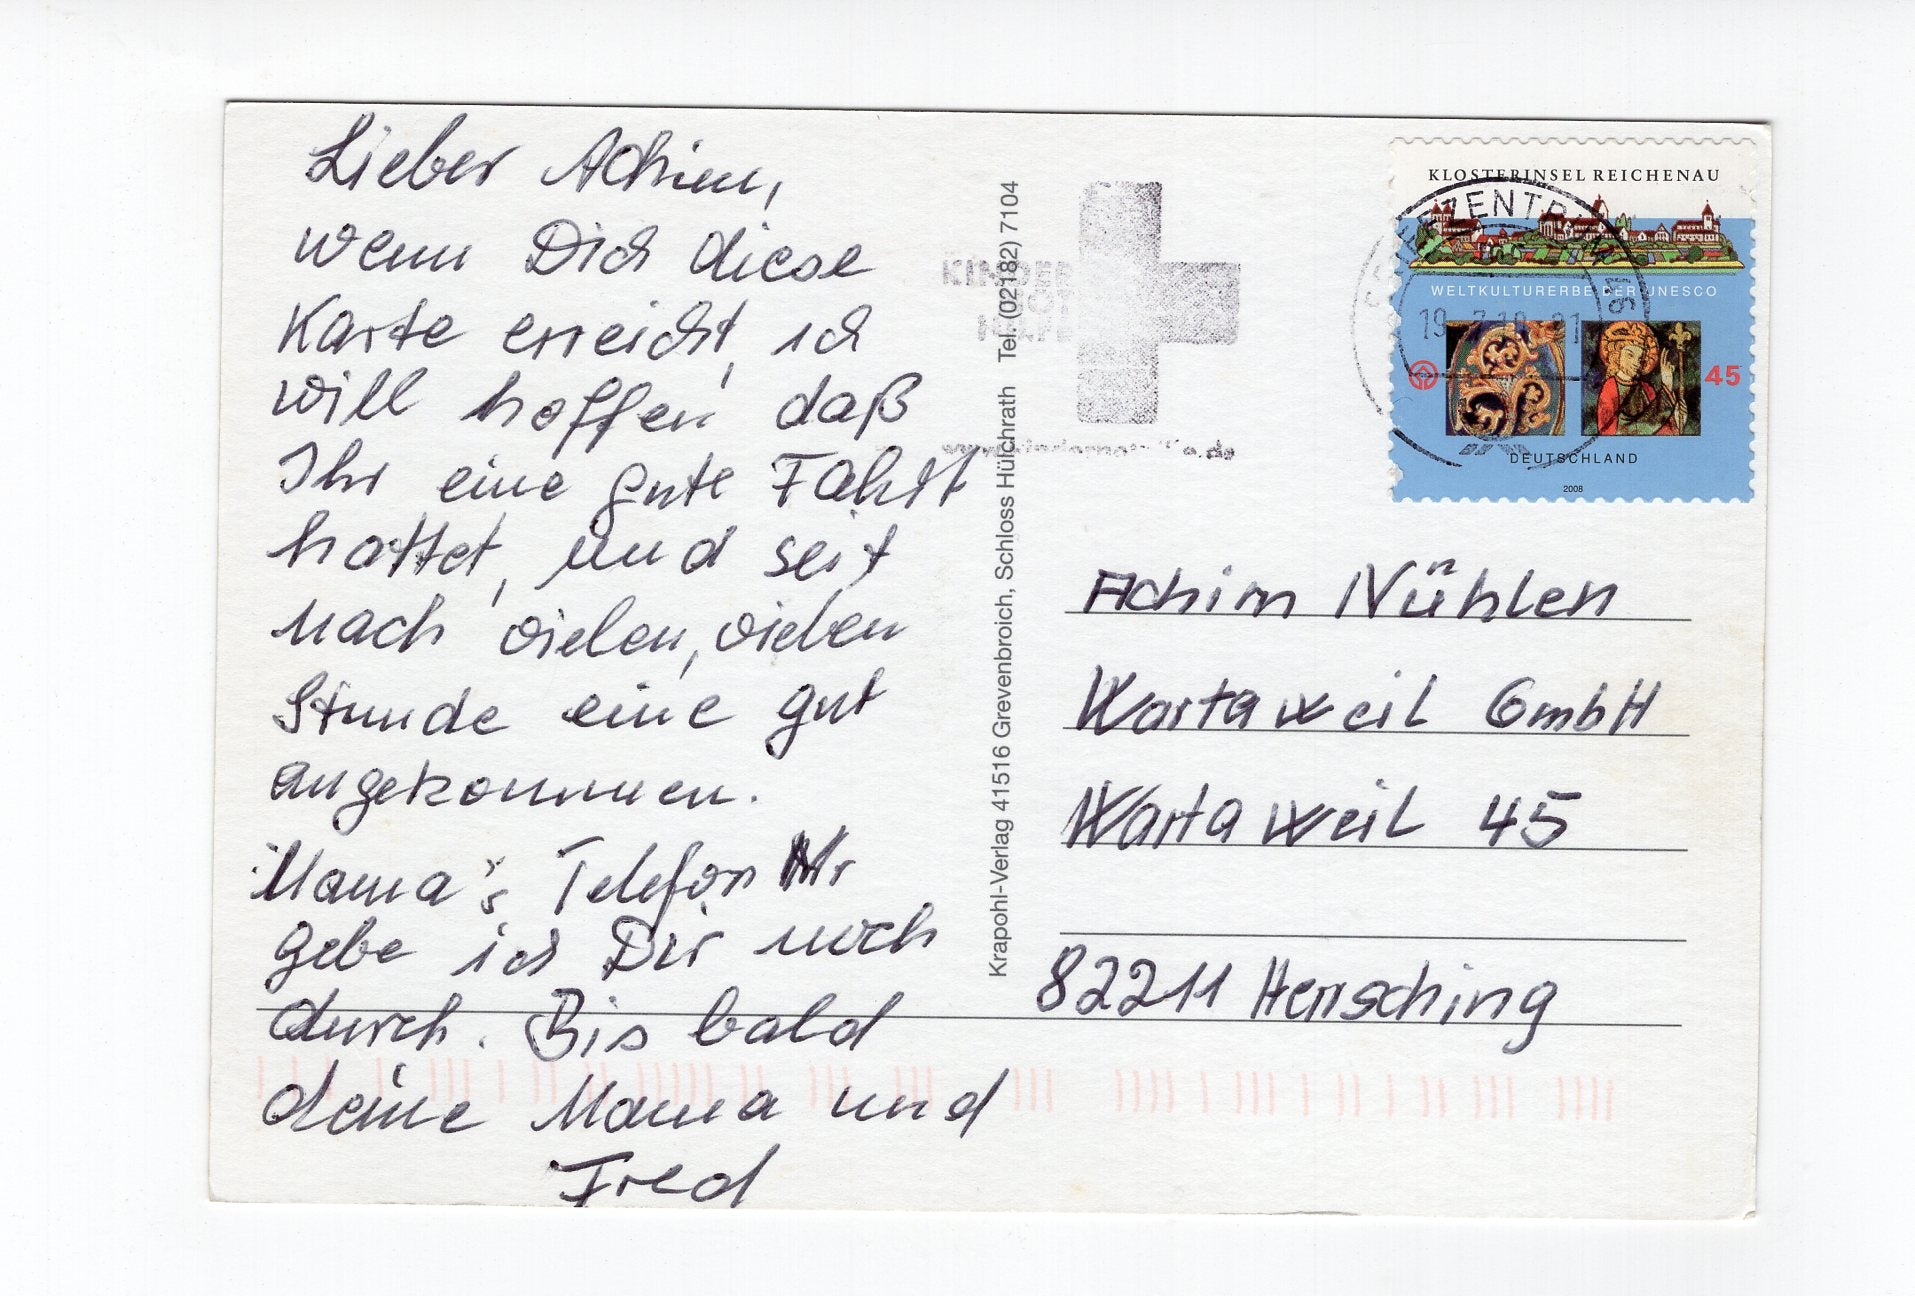 Lieber Achim,
wenn Dich diese
Karte erreicht, ich
will hoffen daß
Ihr eine gute Fahrt
hattet, und seit
nach vielen, vielen
Stunde eine gut
angekommen.
Mama's Telefon Nr
gebe ich Dir noch
durch. Bis bald
deine Mama und
Fred
Krapohl-Verlag 41516 Grevenbroich, Schloss Hülchrath Tel. (02182) 7104
KINDER
NOT
HILFE
KLOSTERINSEL REICHENAU
WELTKULTURERBE DER UNESCO
45
DEUTSCHLAND
2008
BRIEFZENTRUM
19.7.10-21
Achim Nühlen
Wartaweil GmbH
Wartaweil 45
82211 Herrsching